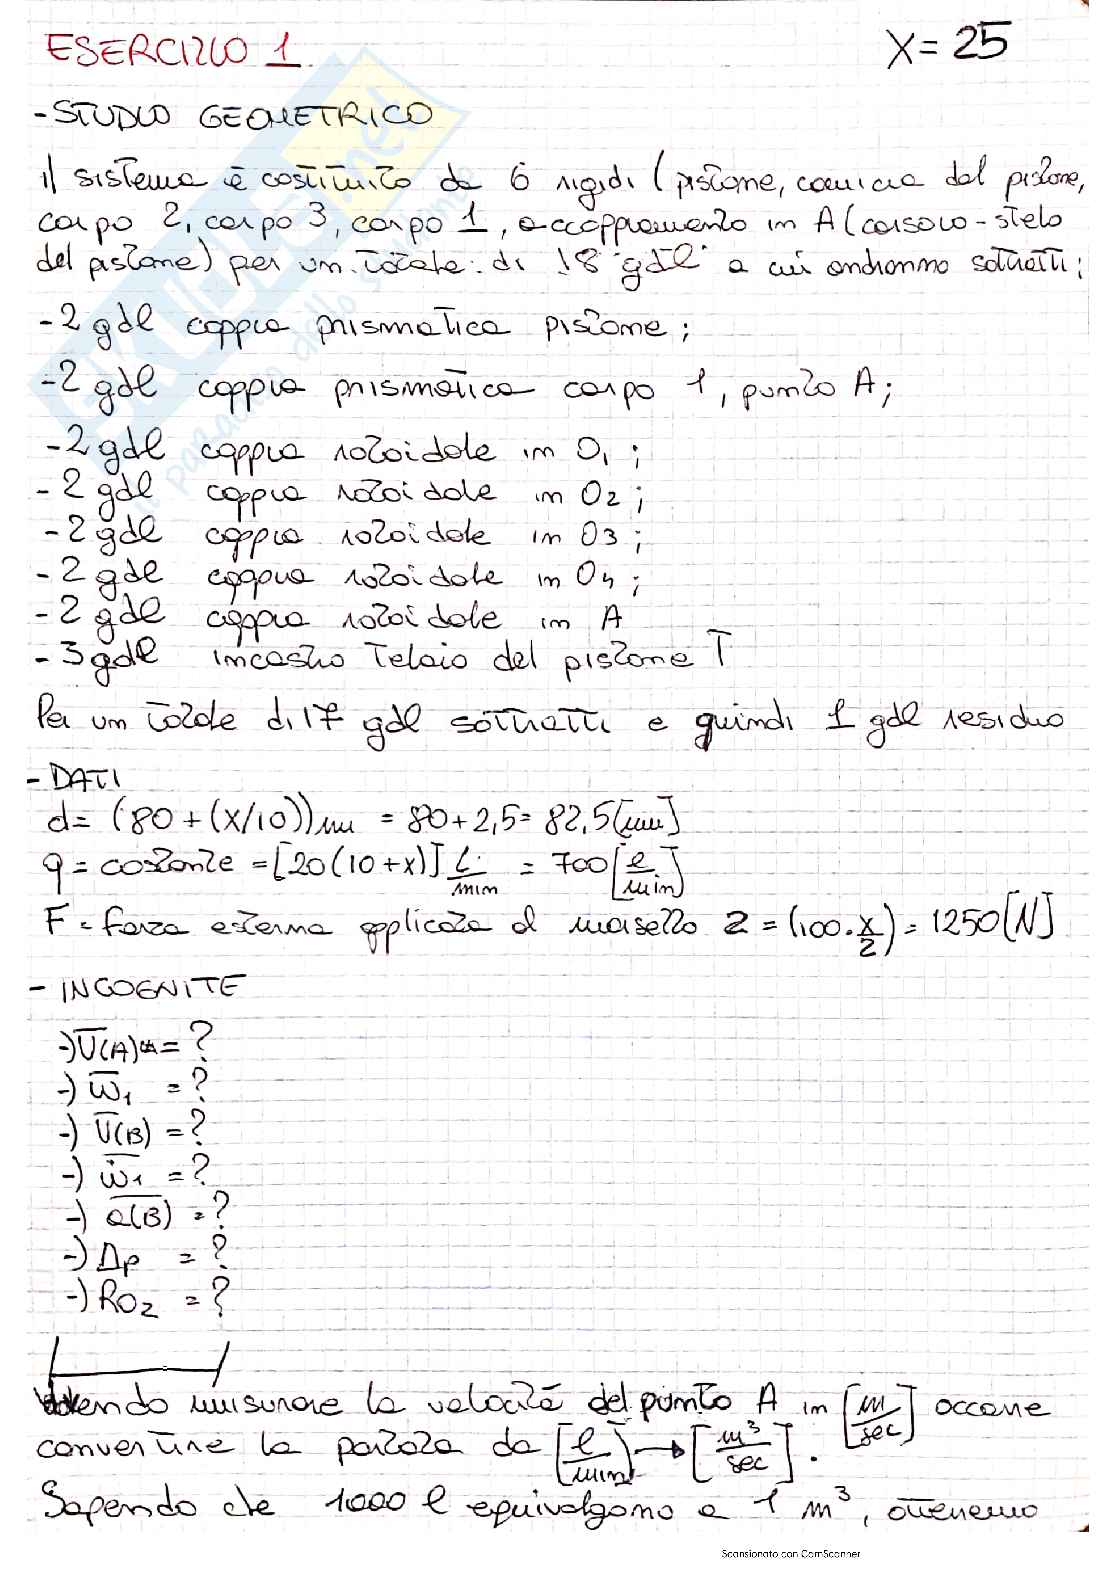 ESERCIZIO 1
X = 25
- STUDIO GEOMETRICO
il sistema è costituito da 6 rigidi (pistone, camicia del pistone,
corpo 2, corpo 3, corpo 1, accoppiamento in A (corsoio - stelo
del pistone) per un totale di 18 gdl a cui andranno sottratti:
- 2 gdl coppia prismatica pistone;
- 2 gdl coppia prismatica corpo 1, punto A;
- 2 gdl coppia rotoidale in O1;
- 2 gdl coppia rotoidale in O2;
- 2 gdl coppia rotoidale in O3;
- 2 gdl coppia rotoidale in O4;
- 2 gdl coppia rotoidale in A
- 3 gdl incastro Telaio del pistone T
Per un totale di 17 gdl sottratti e quindi 1 gdl residuo
- DATI
d = (80 + (X/10)) mm = 80 + 2,5 = 82,5 [mm]
q = costante = [20(10+x)] L/min = 700 [l/min]
F = forza esterna applicata al morsetto 2 = (100 · X/2) = 1250 [N]
- INCOGNITE
-) V(A) = ?
-) ω1 = ?
-) V(B) = ?
-) ω̇1 = ?
-) a(B) = ?
-) Δp = ?
-) RO2 = ?
volendo misurare la velocità del punto A in [m/sec] occorre
convertire la portata da [l/min] → [m³/sec].
Sapendo che 1000 l equivalgono a 1 m³, otteniamo
Scansionato con CamScanner